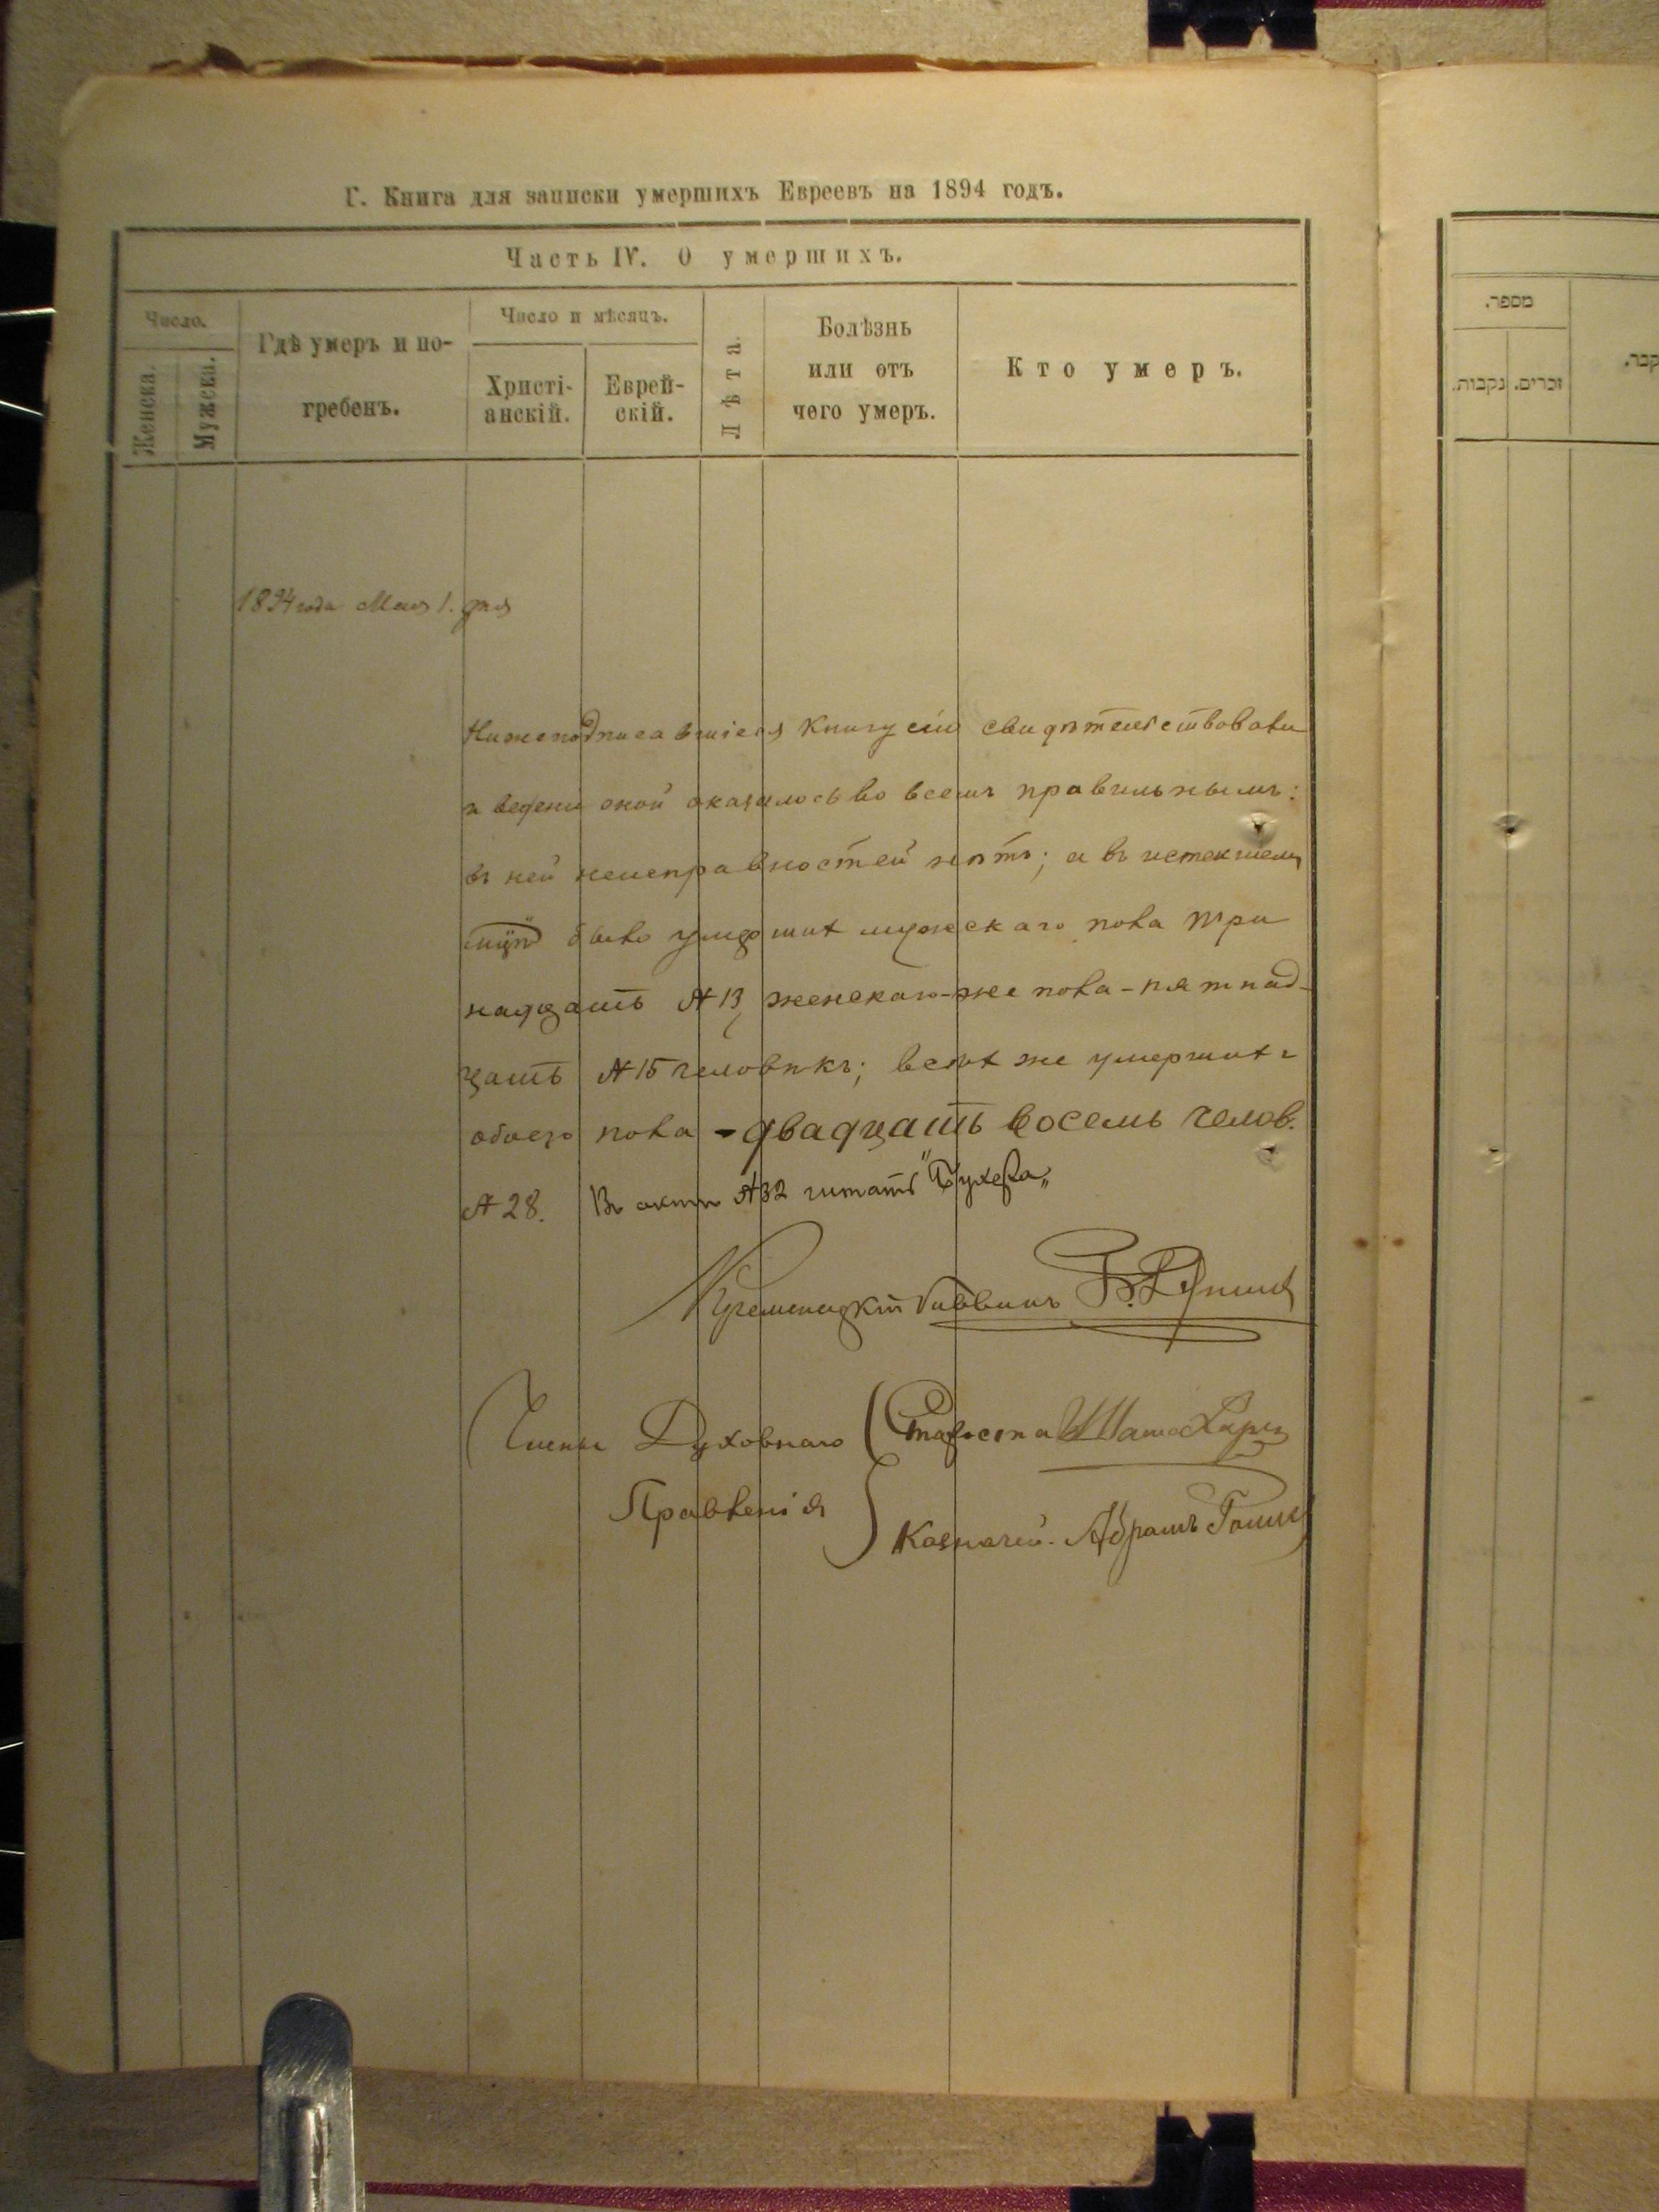 Г. Книга для записки умершихъ Евреевъ на 1894 годъ.
Часть IV. О умершихъ.
Число.
Женска.
Мужска.
Гдѣ умеръ и по-
гребенъ.
Число и мѣсяцъ.
Христі-
анскій.
Еврей-
скій.
Лѣта.
Болѣзнь
или отъ
чего умеръ.
Кто умеръ.
1894 года Мая 1. дня
Нижеподписавшіеся книгу сію свидѣтельствовали
и веденіе оной оказалось во всемъ правильнымъ:
въ ней неисправностей нѣтъ; а въ истекшемъ
было умерших мужескаго пола три
надцать № 13, женскаго-же пола - пятнад-
цать № 15 человѣкъ; всѣх же умерших
обоего пола - двадцать восемь челов.
№ 28. Въ актѣ № 32 читать "Бухера„
Кременецкій Раввинъ
Члены Духовнаго
Правленія
Староста
Казначей. Абрамъ
מספר.
נקבות.
זכרים.
קבר.